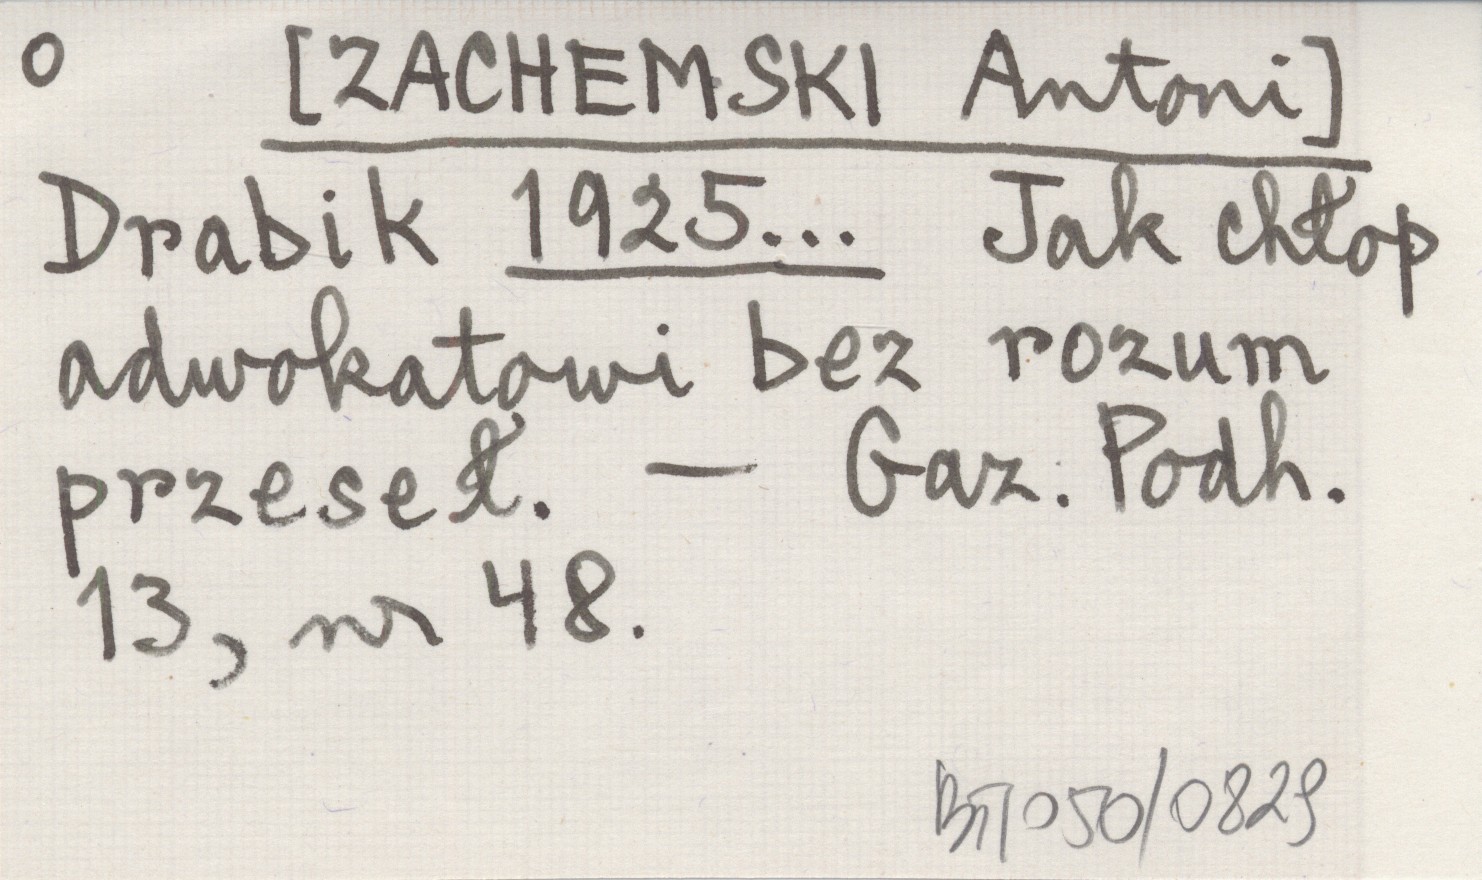 o [ZACHEMSKI Antoni]
Drabik 1925... Jak chłop
adwokatowi bez rozum
przeseł. — Gaz. Podh.
13, nr 48.
050/0829